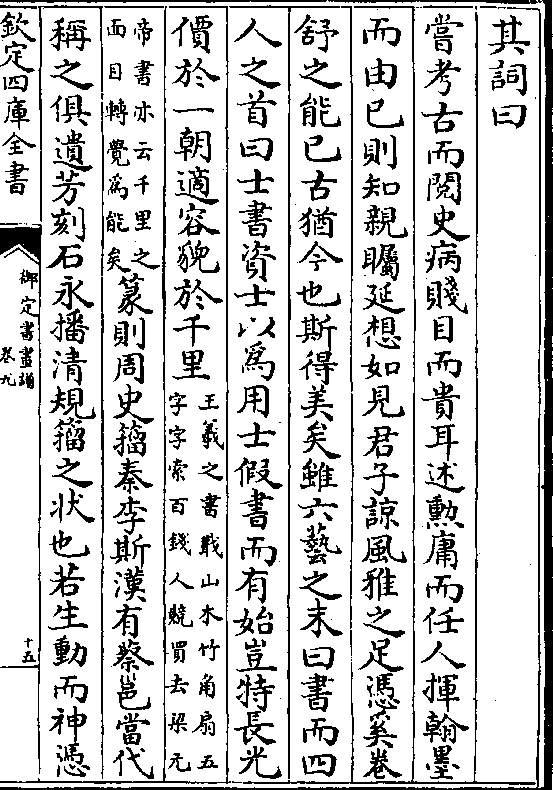 其詞曰
嘗考古而閱史病賤目而貴耳述勲庸而任人揮翰墨
而由已則知親矚延想如見君子諒風雅之足憑奚卷
舒之能已古猶今也斯得美矣雖六藝之末曰書而四
人之首曰士書資士以爲用士假書而有始豈特長光
價於一朝適容貌於千里
王羲之書戢山木竹角扇五
字字索百錢人競買去梁元
帝書亦云千里之
面目轉覺爲能矣
篆則周史籀秦李斯漢有蔡邕當代
稱之俱遺芳刻石永播清規籀之状也若生動而神憑
欽定四庫全書
御定書畫譜
卷九
十五